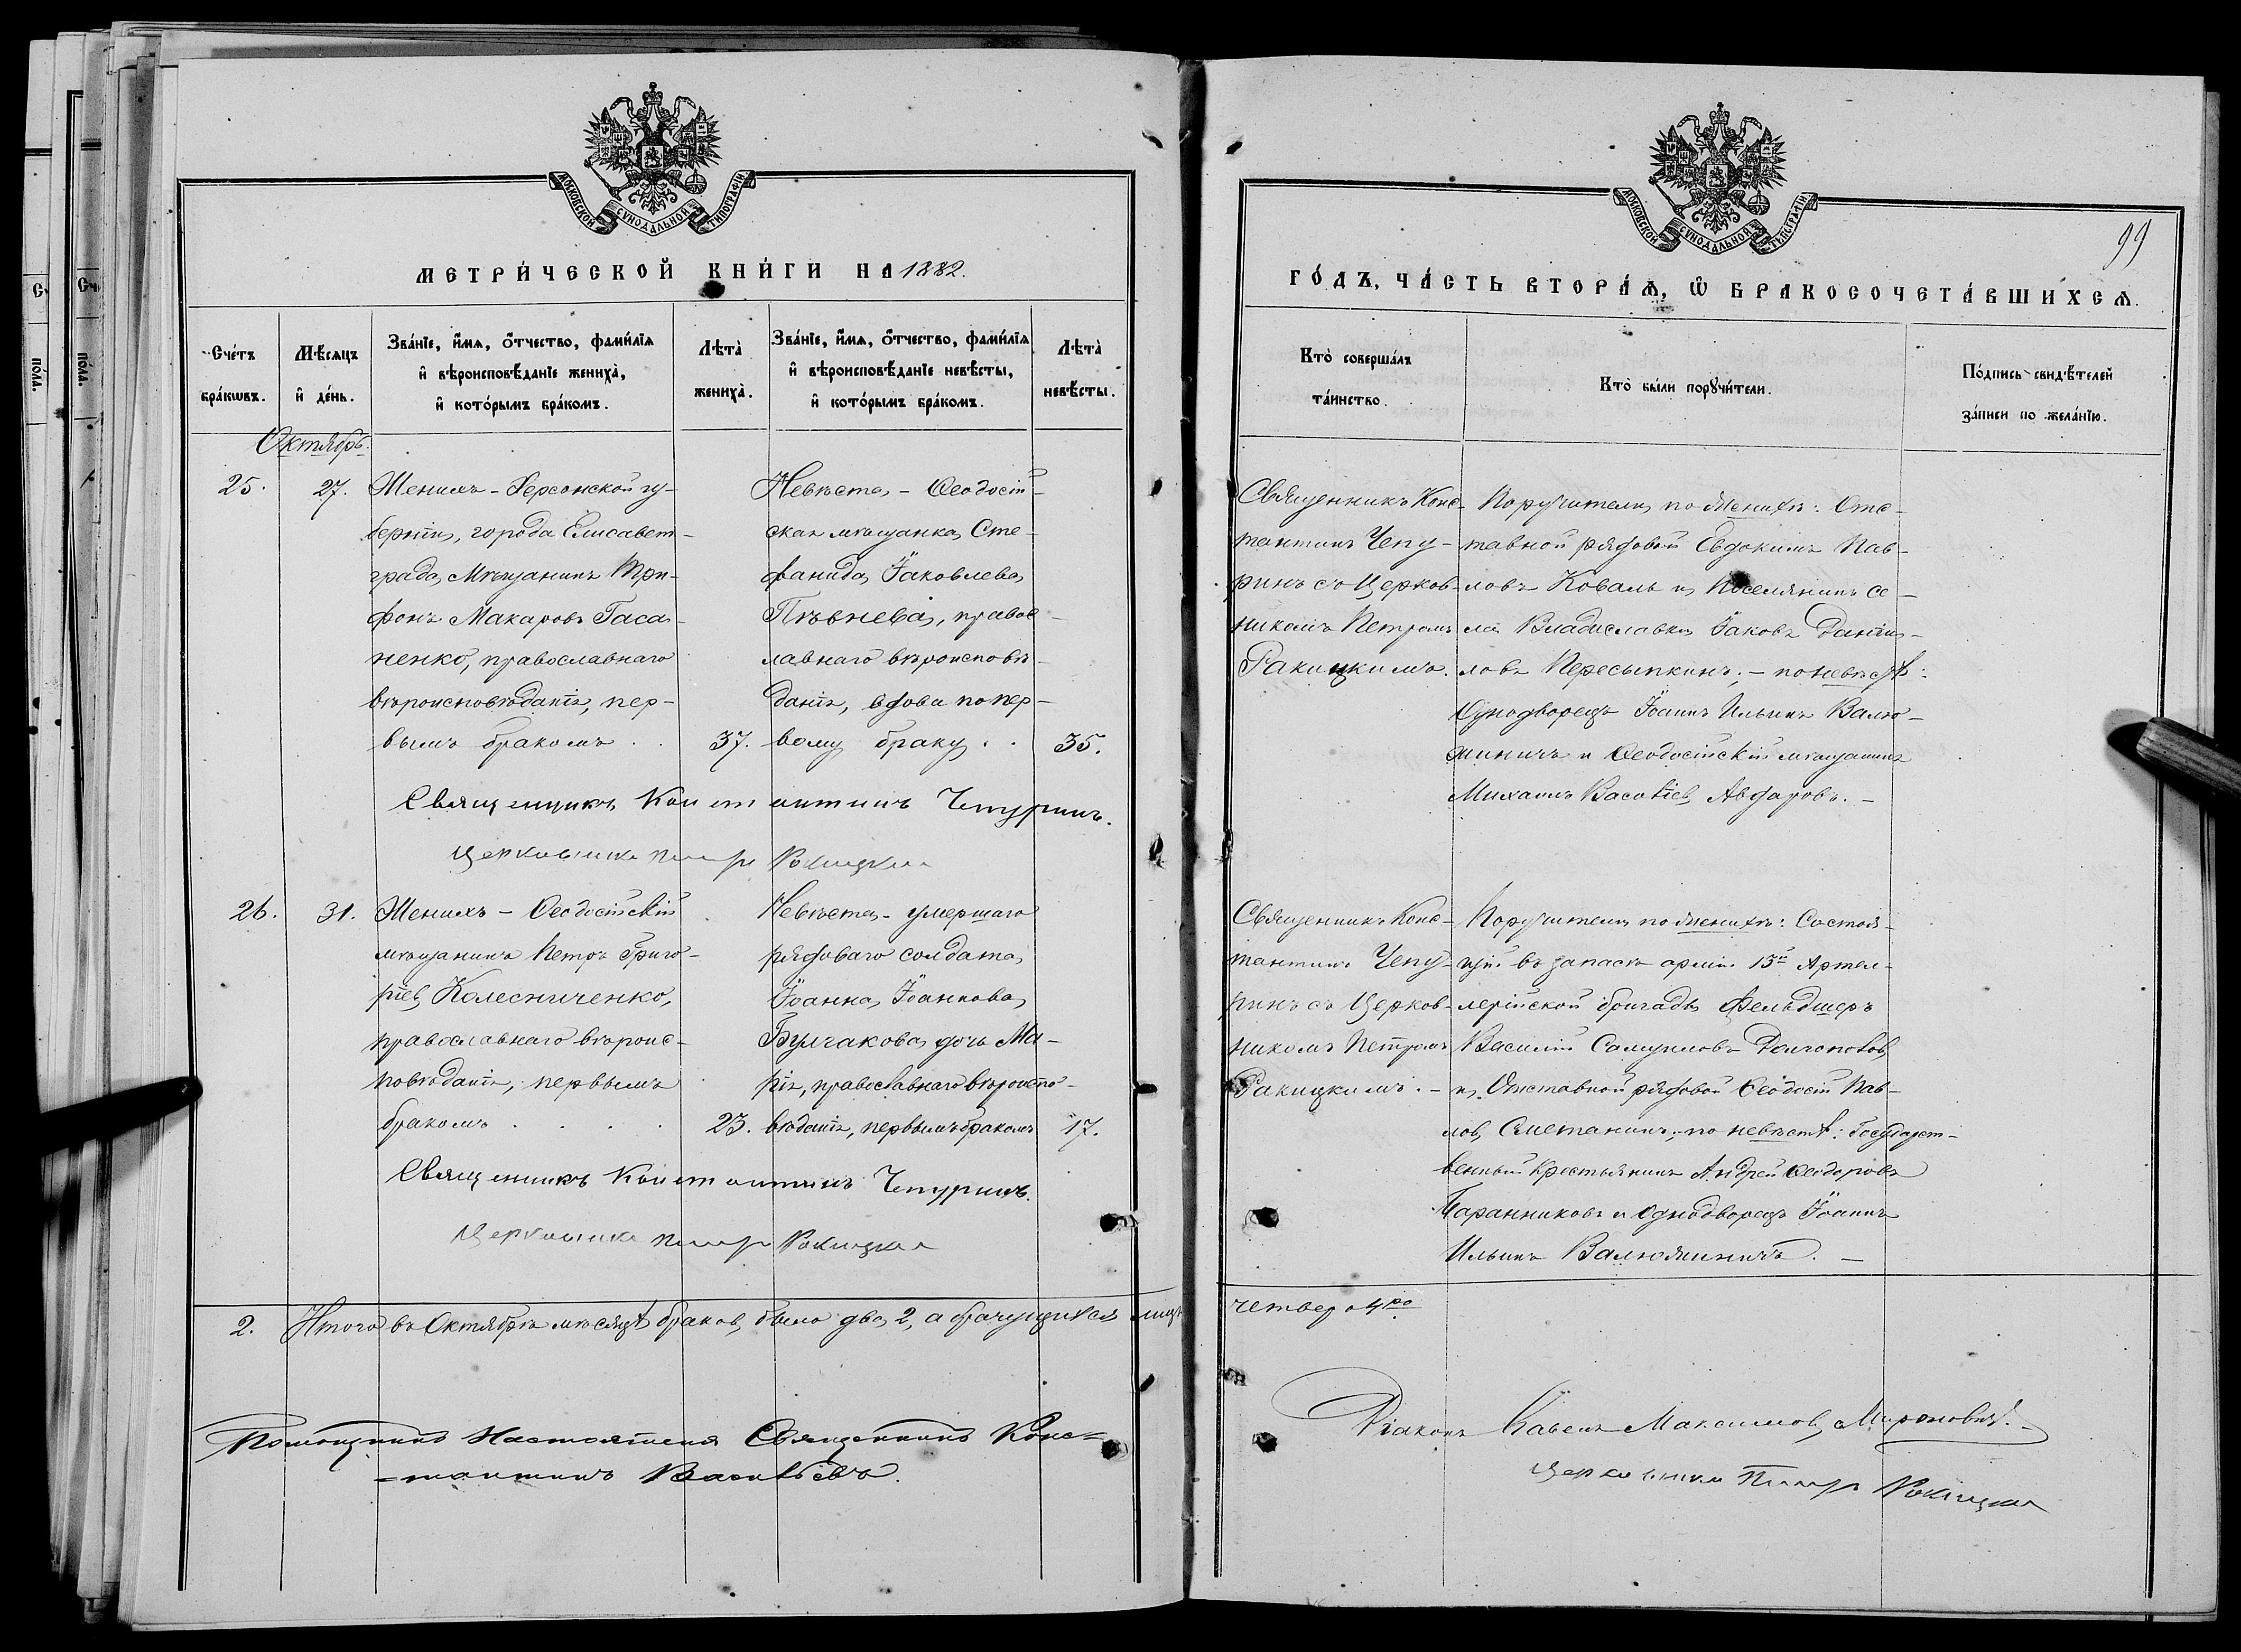 МОСКОВСКОЙ СУНОДАЛЬНОЙ ТИПОГРАФІИ
МЕТРИ́ЧЕСКОЙ КНИ́ГИ НА 1882.
Сче́тъ бра́кωвъ.
Мѣ́сяцъ и҆ де́нь.
Зва́нїе, и҆́мѧ, ѻ҆́тчество, фами́лїѧ и҆ вѣроисповѣ́данїе жениха̀, и҆ кото́рымъ бра́комъ.
Лѣта̀ жениха̀.
Зва́нїе, и҆́мѧ, ѻ҆́тчество, фами́лїѧ и҆ вѣроисповѣ́данїе невѣ́сты, и҆ кото́рымъ бра́комъ.
Лѣта̀ невѣ́сты.
Октябрь.
25.
27.
Женихъ - Херсонской гу-
берніи, города Елисавет-
града, мѣщанинъ Три-
фонъ Макаровъ Гаса-
ненко, православнаго
вѣроисповѣданія, пер-
вымъ бракомъ . .
37.
Невѣста - Ѳеодосій-
ская мѣщанка Сте-
фанида Іаковлева
Пѣвнева, правос-
лавнаго вѣроисповѣ-
данія, вдова по пер-
вому браку . .
35.
Священникъ Константинъ Чепуринъ.
Церковникъ Петръ Ракицкій
26.
31.
Женихъ - Ѳеодосійскій
мѣщанинъ Петръ Григо-
ріевъ Колесниченко,
православнаго вѣроис-
повѣданія, первымъ
бракомъ . . . .
23.
Невѣста - умершаго
рядоваго солдата
Іоанна Іоаннова
Булгакова дочь Ма-
рія, православнаго вѣроиспо-
вѣданія, первымъ бракомъ
17.
Священникъ Константинъ Чепуринъ.
Церковникъ Петръ Ракицкій
2. Итого въ Октябрѣ мѣсяцѣ браковъ было два 2, а брачущихся лицъ
Помощникъ Настоятеля Священникъ Конс=
=тантинъ Васильевъ.
МОСКОВСКОЙ СУНОДАЛЬНОЙ ТИПОГРАФІИ
99
ГО́ДЪ, ЧА́СТЬ ВТОРА́Ѧ, Ѡ҆ БРАКОСОЧЕТА́ВШИХСѦ.
Кто̀ соверша́лъ та́инство.
Кто̀ бы́ли порꙋчи́тели.
По́дпись свидѣ́телей за́писи по жела́нїю.
Священникъ Конс-
тантинъ Чепу-
ринъ съ Церков-
никомъ Петромъ
Ракицкимъ.
Поручители по женихѣ: Отс-
тавной рядовой Евдокимъ Пав-
ловъ Коваль и поселянинъ се-
ла Владиславки Іаковъ Даніи-
ловъ Пересыпкинъ; - по невѣстѣ:
Однодворецъ Іоаннъ Ильинъ Валю-
жиничъ и Ѳеодосійскій мѣщанинъ
Михаилъ Васильевъ Авдаровъ. -
Священникъ Конс-
тантинъ Чепу-
ринъ съ Церков-
никомъ Петромъ
Ракицкимъ. -
Поручители по женихѣ: Состоя-
щій въ запасѣ арміи 13й Артил-
лерійской бригады Фельдшеръ
Василій Самуиловъ Долгополовъ
и Отставной рядовой Ѳеодосій Пав-
ловъ Сметанинъ, - по невѣстѣ: Государст-
венный Крестьянинъ Андрей Ѳеодоровъ
Баранниковъ и Однодворецъ Іоаннъ
Ильинъ Валюжиничъ. -
четверо 4ро
Діаконъ Павелъ Максимовъ Мироновичъ. -
Церковникъ Петръ Ракицкій